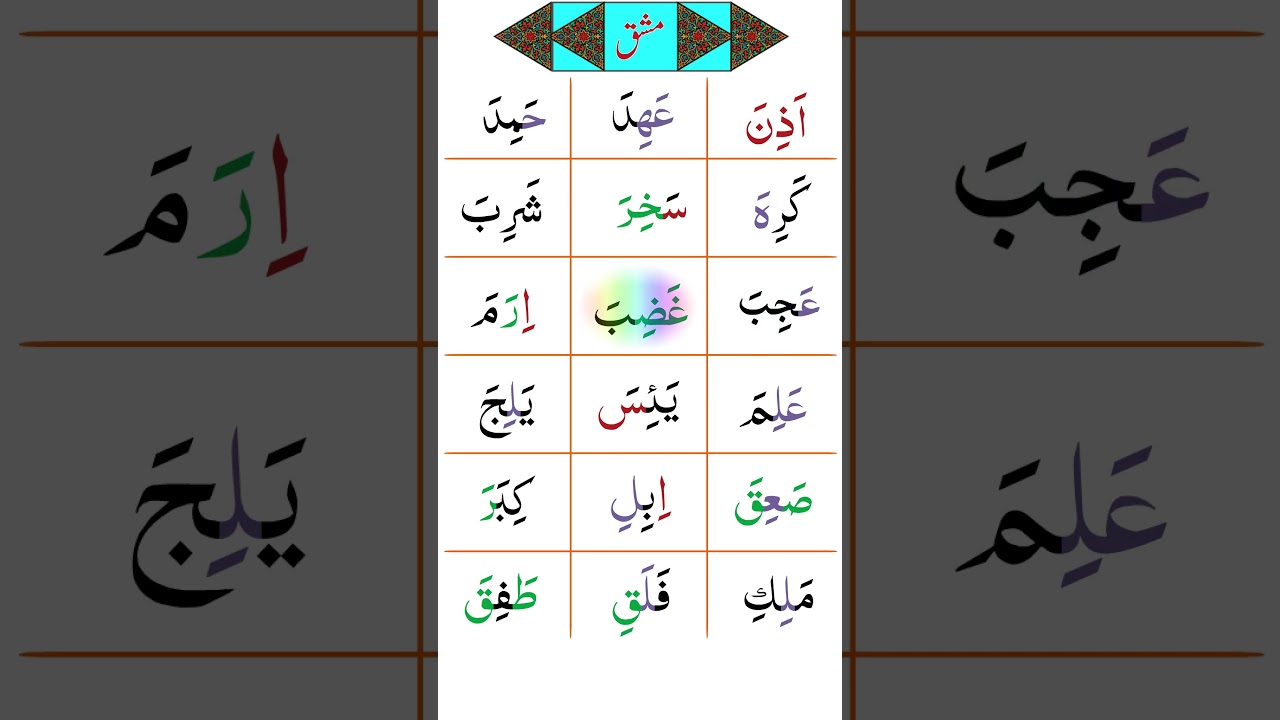 مشق
اَذِنَ عَهِدَ حَمِدَ
كَرِهَ سَخِرَ شَرِبَ
عَجِبَ غَضِبَ اِرَمَ
عَلِمَ يَئِسَ يَلِجَ
صَعِقَ اِبِلِ كِبَرَ
مَلِكِ فَلَقِ طَفِقَ
عَجِبَ اِرَمَ
عَلِمَ يَلِجَ